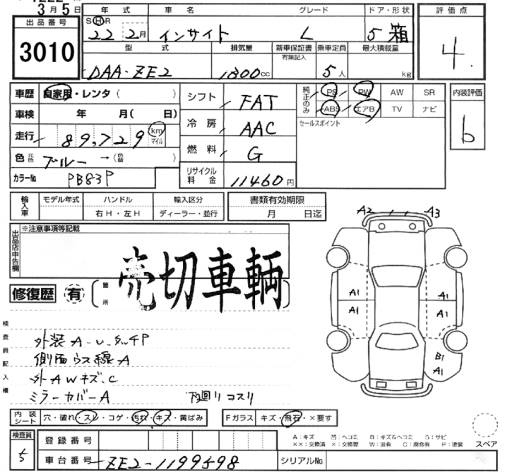 3月5日
出品番号 3010
年式 車名 グレード ドア・形状 評価点
SH 22 2月 インサイト L 5 箱 4.
型式 排気量 新車保証書 有無記入 乗車定員 最大積載量
DAA-ZE2 1300cc 5人 kg
車歴 自家用・レンタ( )
シフト FAT
純正のみ PS PW AW SR
ABS エアB TV ナビ
内装評価 b
車検 年 月( 日)
冷房 AAC
セールスポイント
走行 89,729 km マイル
燃料 G
色 元色 ブルー →(色替)
カラーNo PB83P
リサイクル料金 11460円
輸入車 モデル年式 ハンドル 輸入区分 書類有効期限
右H・左H ディーラー・並行 月 日迄
出品店申告欄 ※注意事項等記載
修復歴 有 箇所
売切車輌
A2 A3
A1 A1
A1 A1
B1
A1
検査員記入欄
外装A.U.タッチP
側面ウス線A
外AWキズ.C
ミラーカバーA 下回リコスリ
内装シート 穴・破れ・スレ・コゲ・汚れ・キズ・黄ばみ
Fガラス キズ・飛石・×要す
検査員
登録番号
A:キズ
スペア
車台番号 ZE2-1199598
シリアルNo